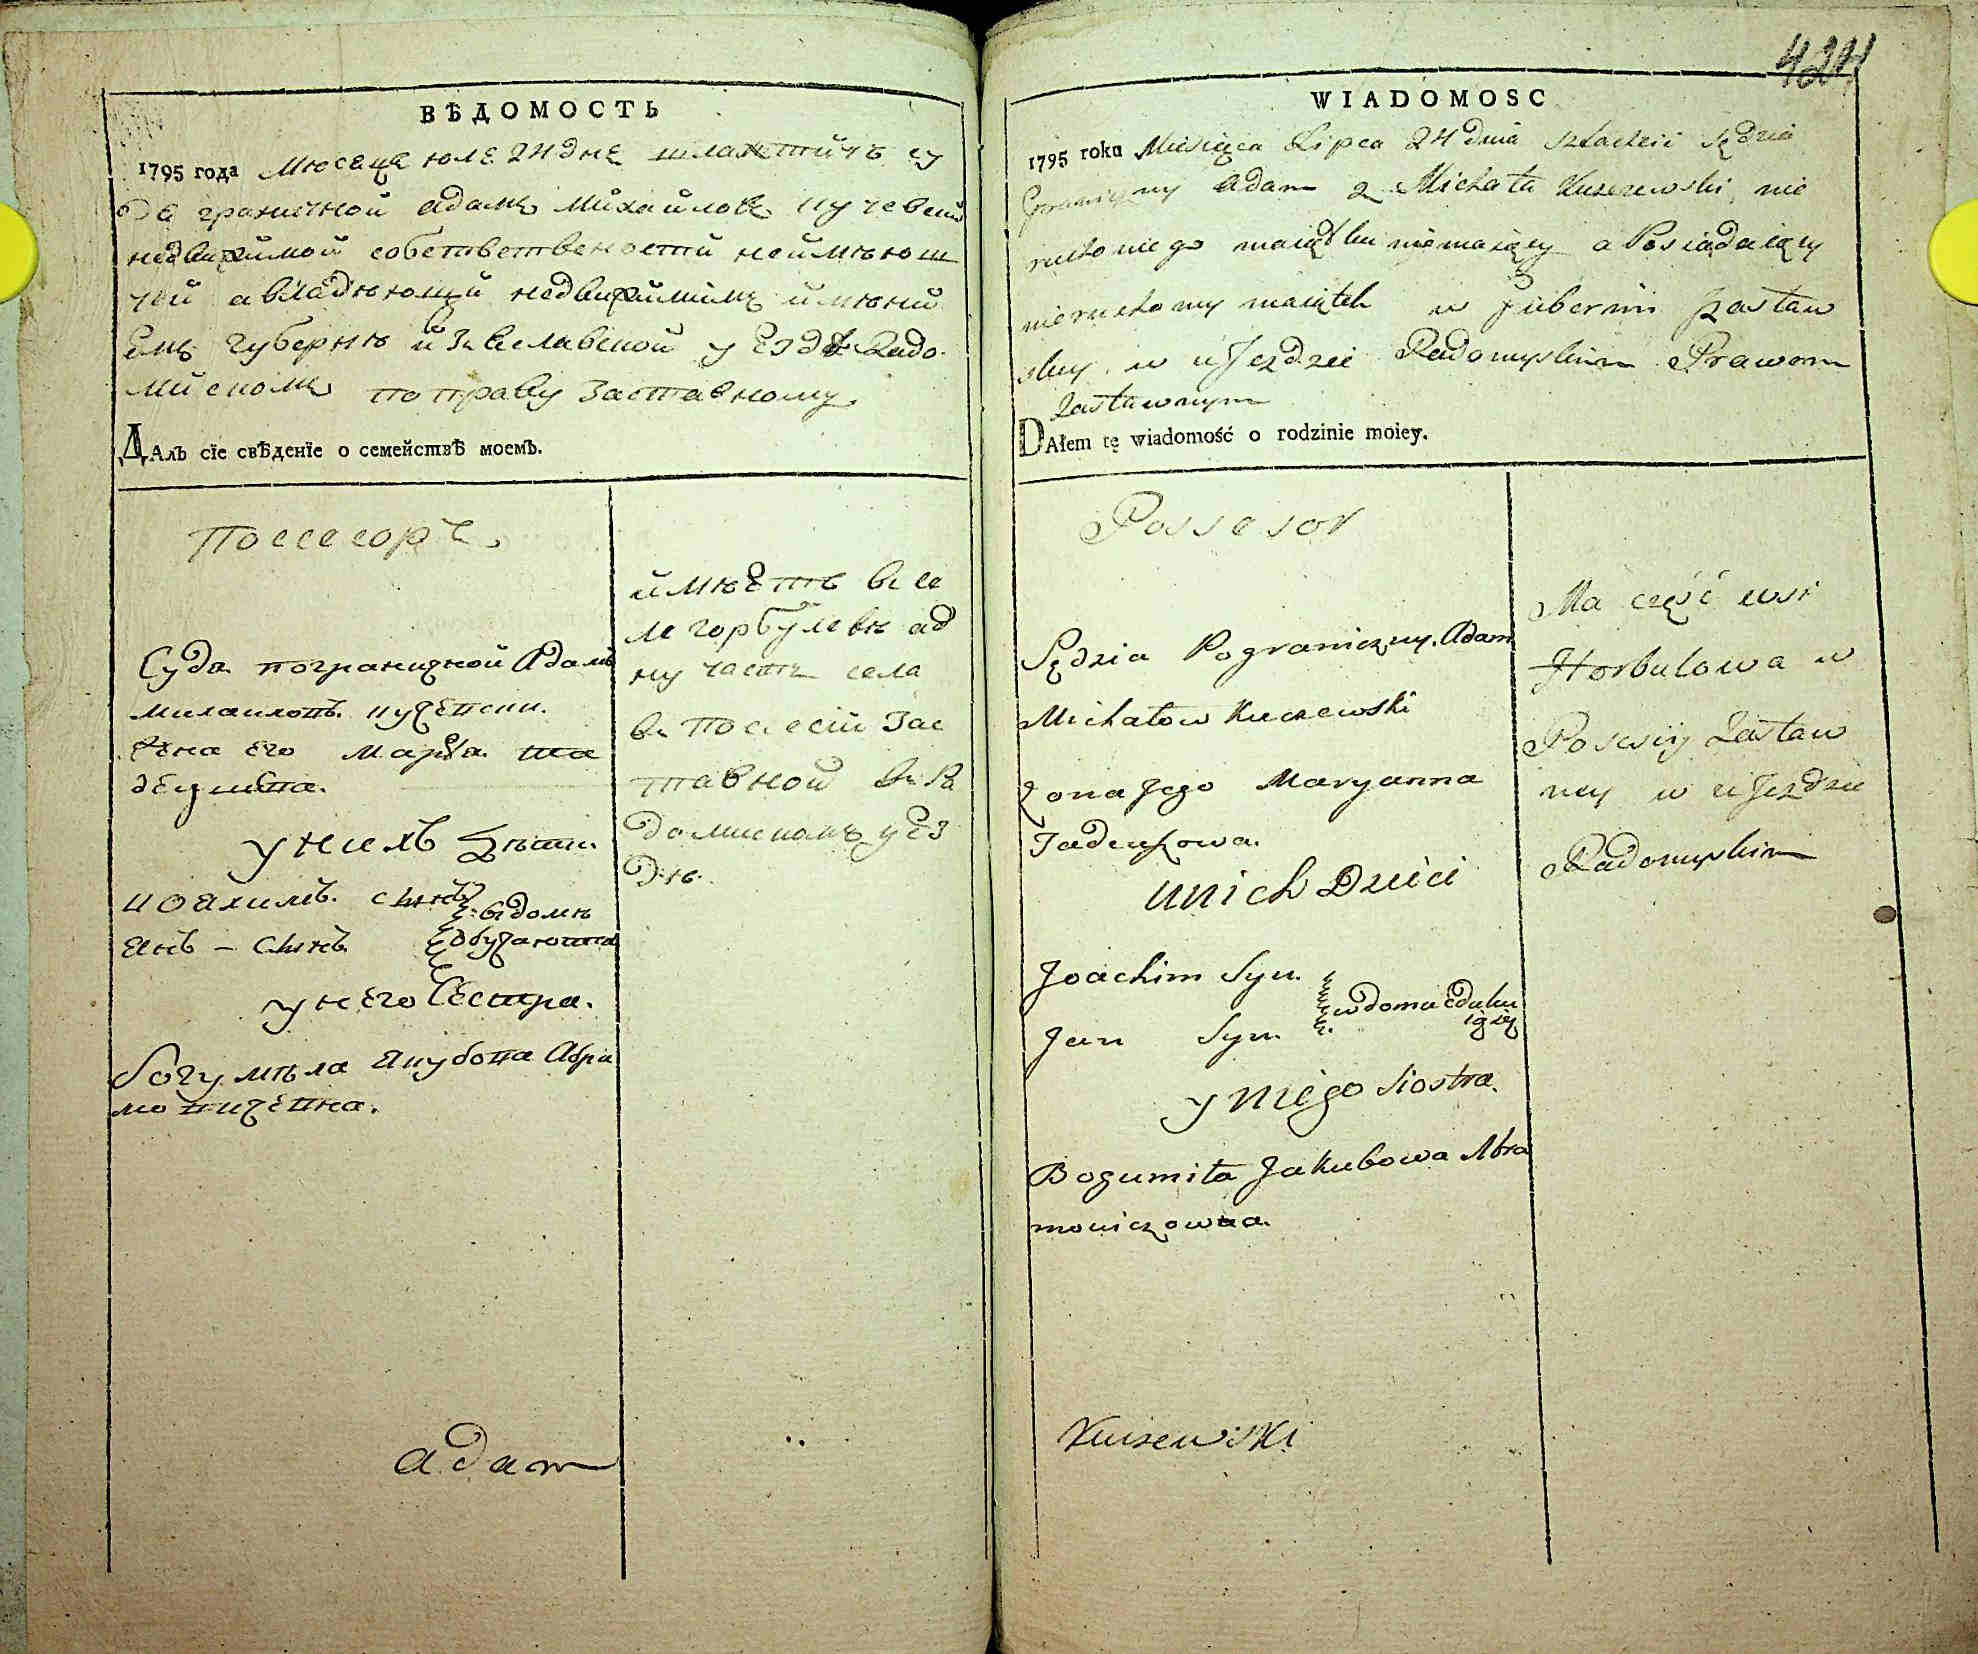 ВѢДОМОСТЬ
1795 года Мѣсеца юлѧ 24 днѧ шлахтичъ су
да граничной адамъ Михайловъ кучевски
недвижимой собстветвеностй неймѣющ
чей авладѣющй недвижимимъ имѣний
емъ губернѣ Изѧславской уезде Радо
мйскомъ по праву заставному
ДАлъ сїе свѣденїе о семействѣ моемъ.
Поссесоръ.
Суда пограничной Адамъ
Михаиловъ кучевски.
Жена его Марѧ
Уних дѣти.
иоахимъ. сынъ
Янъ – сынъ
в домѣ
обучаютца
у него сестра.
Богумѣла Якубова Абра
мовичевна.
имѣетъ в се
ле горбулевѣ ад
ну часть села
в поссесіи Зас
тавной в Ра
домискомъ уез
дѣ.
adam
424
WIADOMOSC
1795 roku Miesięca Lipca 24 dnia szlachcic sędzia
Graniczny Adam z Michała Kuczewski nie
ruchomego maiątku niemaiący a Posiadaiący
nieruchomy maiątek w Gubernii Izasław
skiey w uJezdzie Radomyslkim Prawem
Zastawnym
DAłem tę wiadomość o rodzinie moiey.
Possesor
Sędzia Pograniczny. Adam
Michałow Kuczewski
Zona Jego Maryanna
Tadeuszowa.
unich Dzieci
Joachim Syn.
Jan Syn.
w domu eduku
ią się
y niego Siostra.
Bogumiła Jakubowa Abra
mowiczowna.
Ma część wsi
Horbulowa w
Posesij Zastaw
ney w uJezdzie
Radomyslkim
Kuczewski